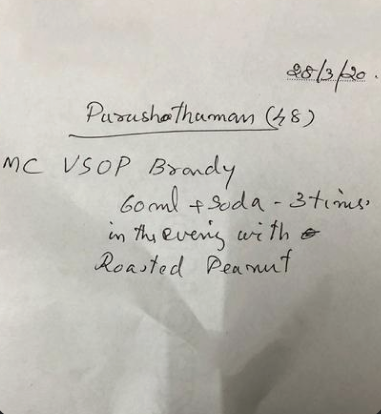 28/3/20.
Purushothaman (48)
MC VSOP Brandy
60ml + Soda - 3 times
in the evenig with
Roasted Peanut